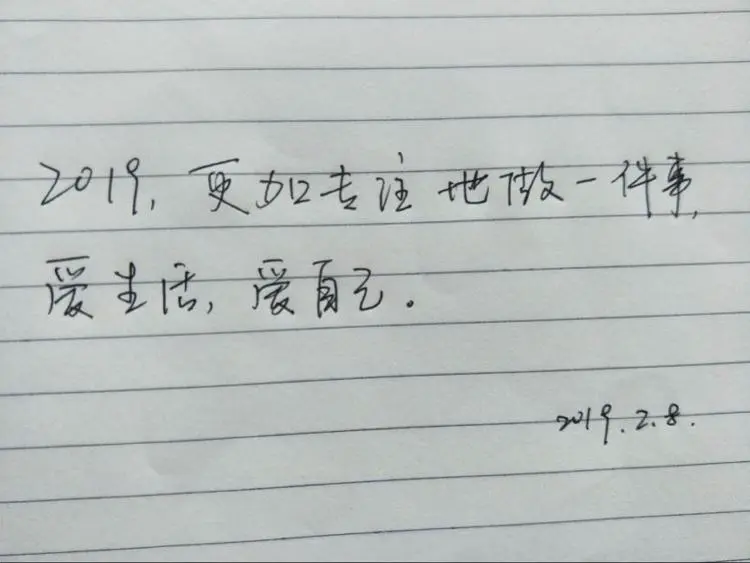 2019, 更加专注地做一件事,
爱生活, 爱自己.
2019.2.8.